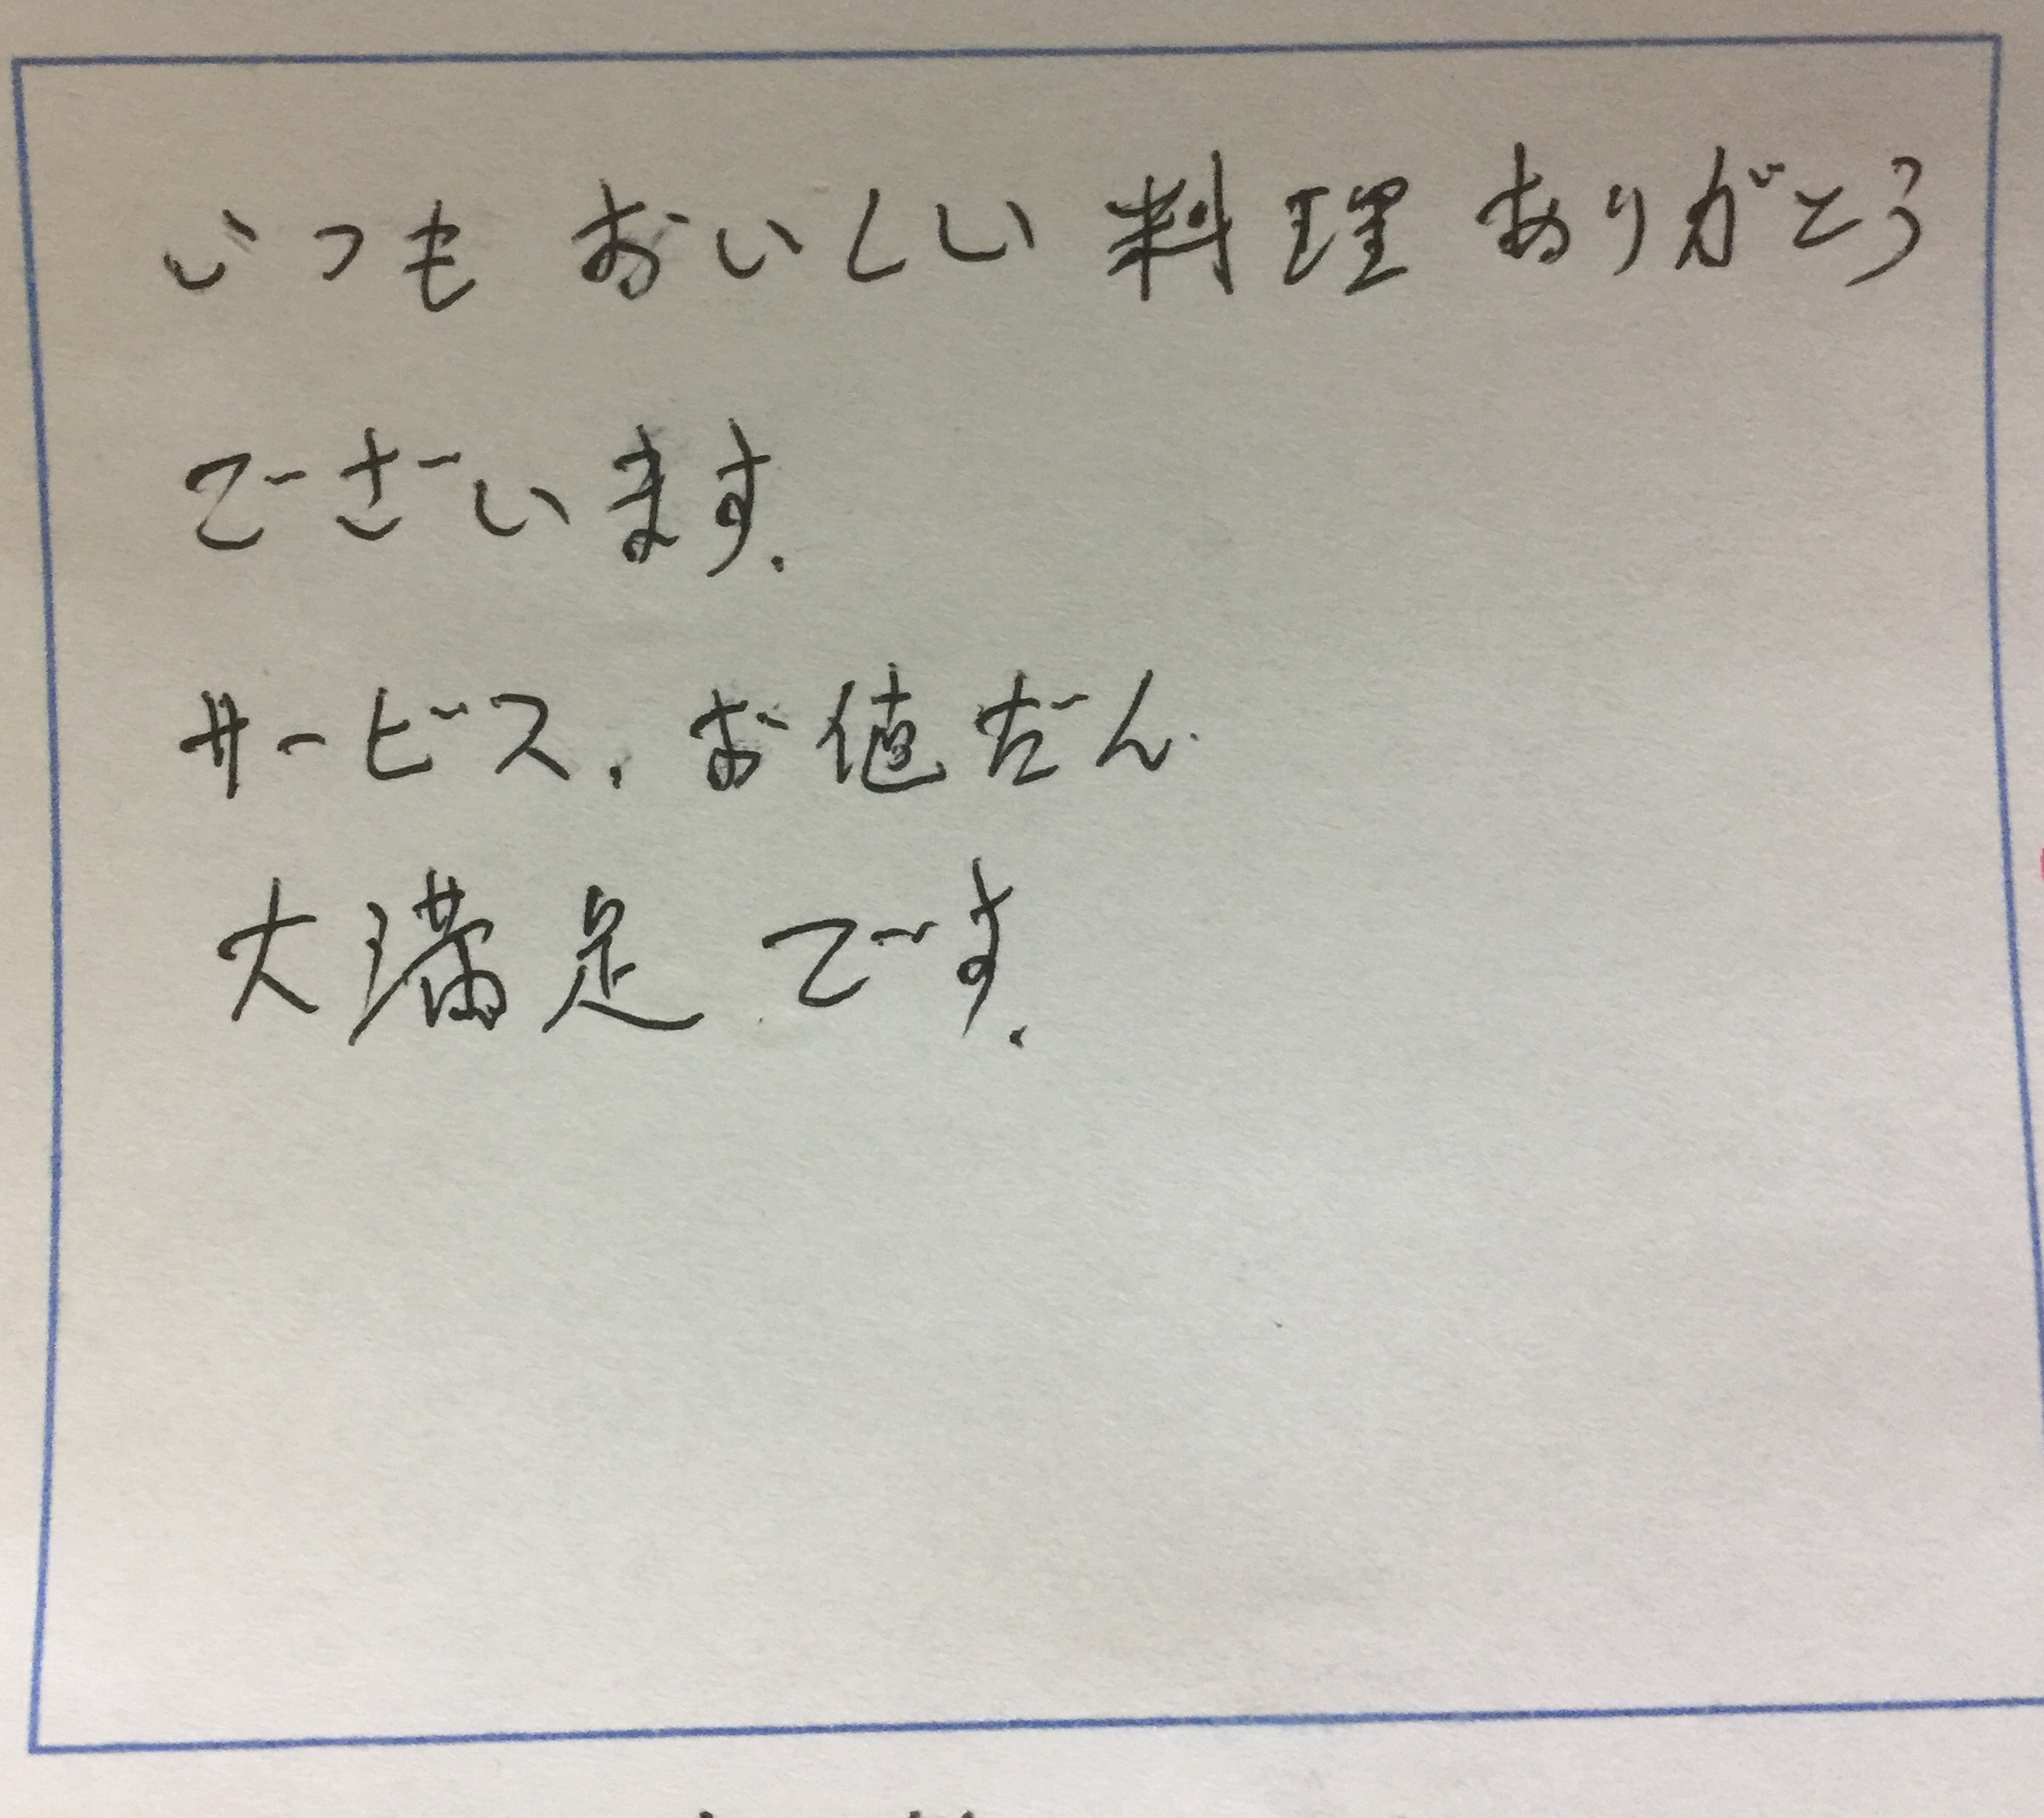 いつもおいしい料理ありがとう
ございます.
サービス、お値だん
大満足です.